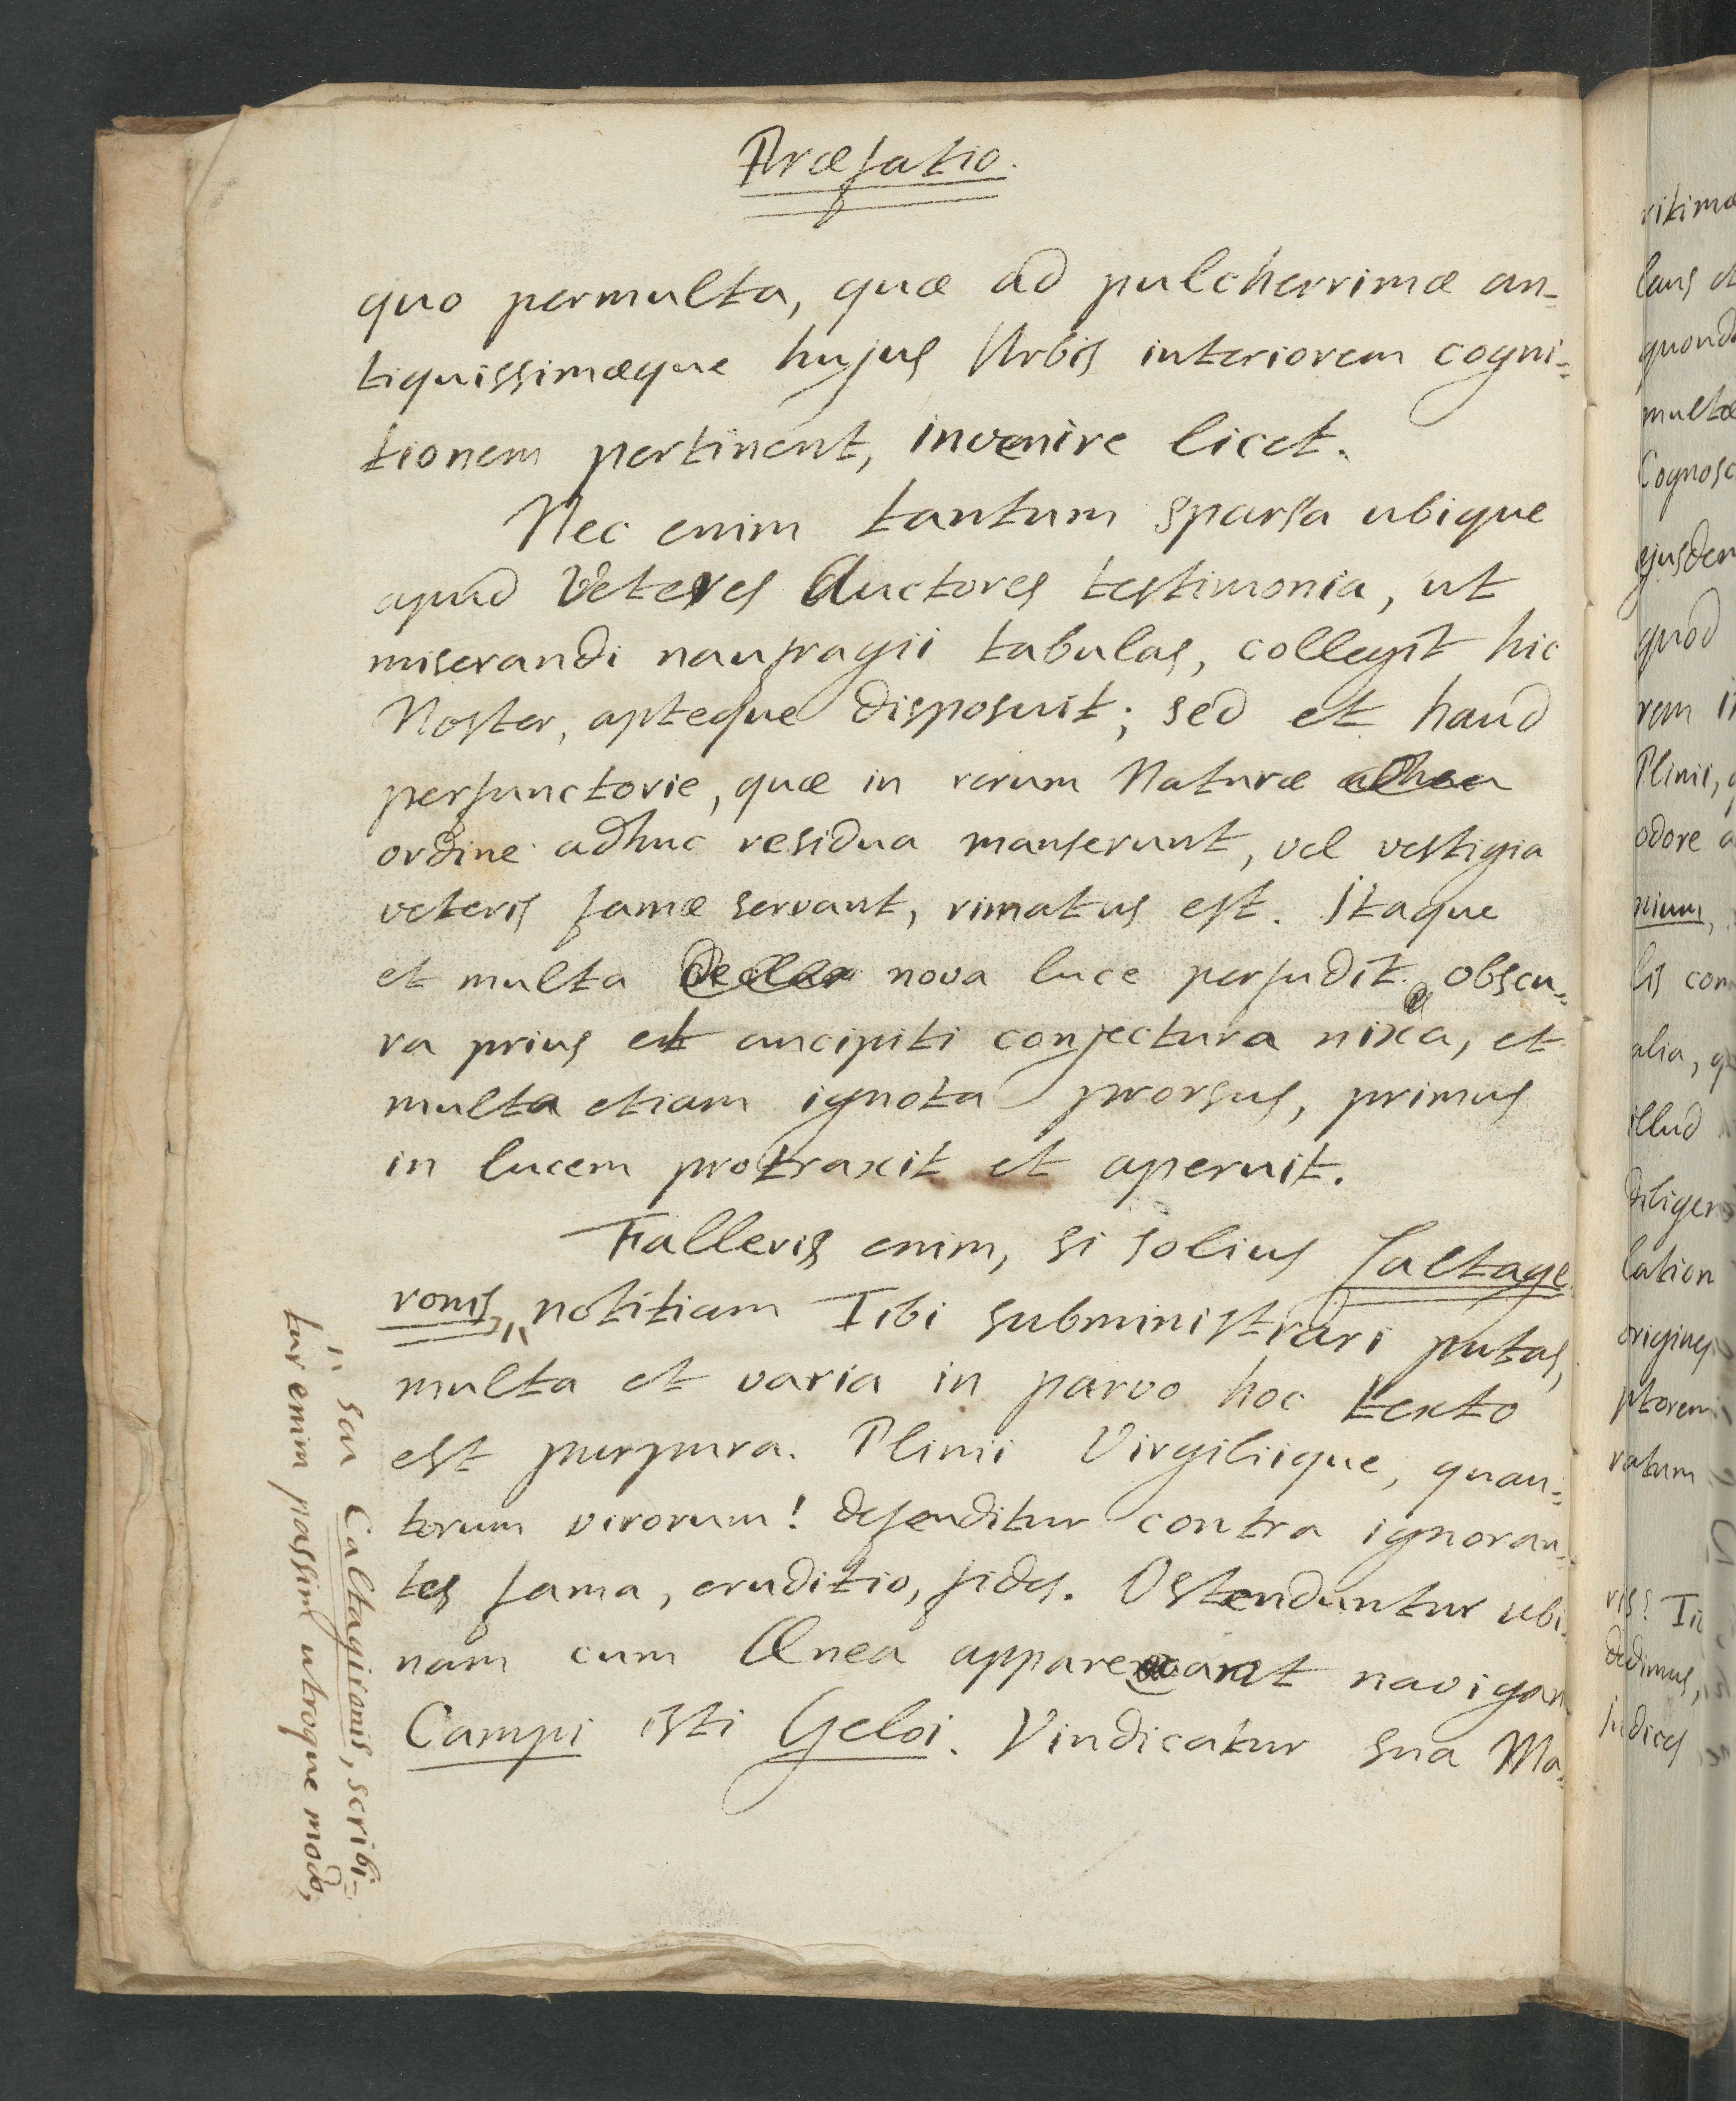 Præfatio.
quo permulta, quæ ad pulcherrimæ an=
tiquissimæque hujus Urbis interiorem cogni=
tionem pertinent, invenire licet.
Nec enim tantum sparsa ubique
apud Veteres Auctores testimonia, ut
miserandi naufragii tabulas, collegit hic
Noster, apteque disposuit; sed et haud
perfunctorie, quæ in rerum Naturæ
ordine adhuc residua manserunt, vel vestigia
veteris famæ servant, rimatus est. Itaque
et multa nova luce perfudit obscu=
ra prius et ancipiti conjectura nixa, et
multa etiam ignota prorsus, primus
in lucem protraxit et aperuit.
Falleris enim, si solius Caltage
ronis, notitiam Tibi subministrari putas,
multa et varia in parvo hoc texto
est purpura. Plinii Virgiliique, quan=
torum virorum! defenditur contra ignoran=
tes fama, eruditio, fides. Ostenduntur ubi=
nam cum Ænea appareant navigan
Campi isti Geloi. Vindicatur sua Ma=
seu Caltagironis, scribi=
tur enim passim utroque modo,
ritimæ
laus et
quond
multæ
Cognosc
ejusdem
quod
rem
Plinii,
odore a
nium,
lis com
alia, q
illud
diligen
lation
origines
ptorem
ratum
ris!
dedimus,
judices